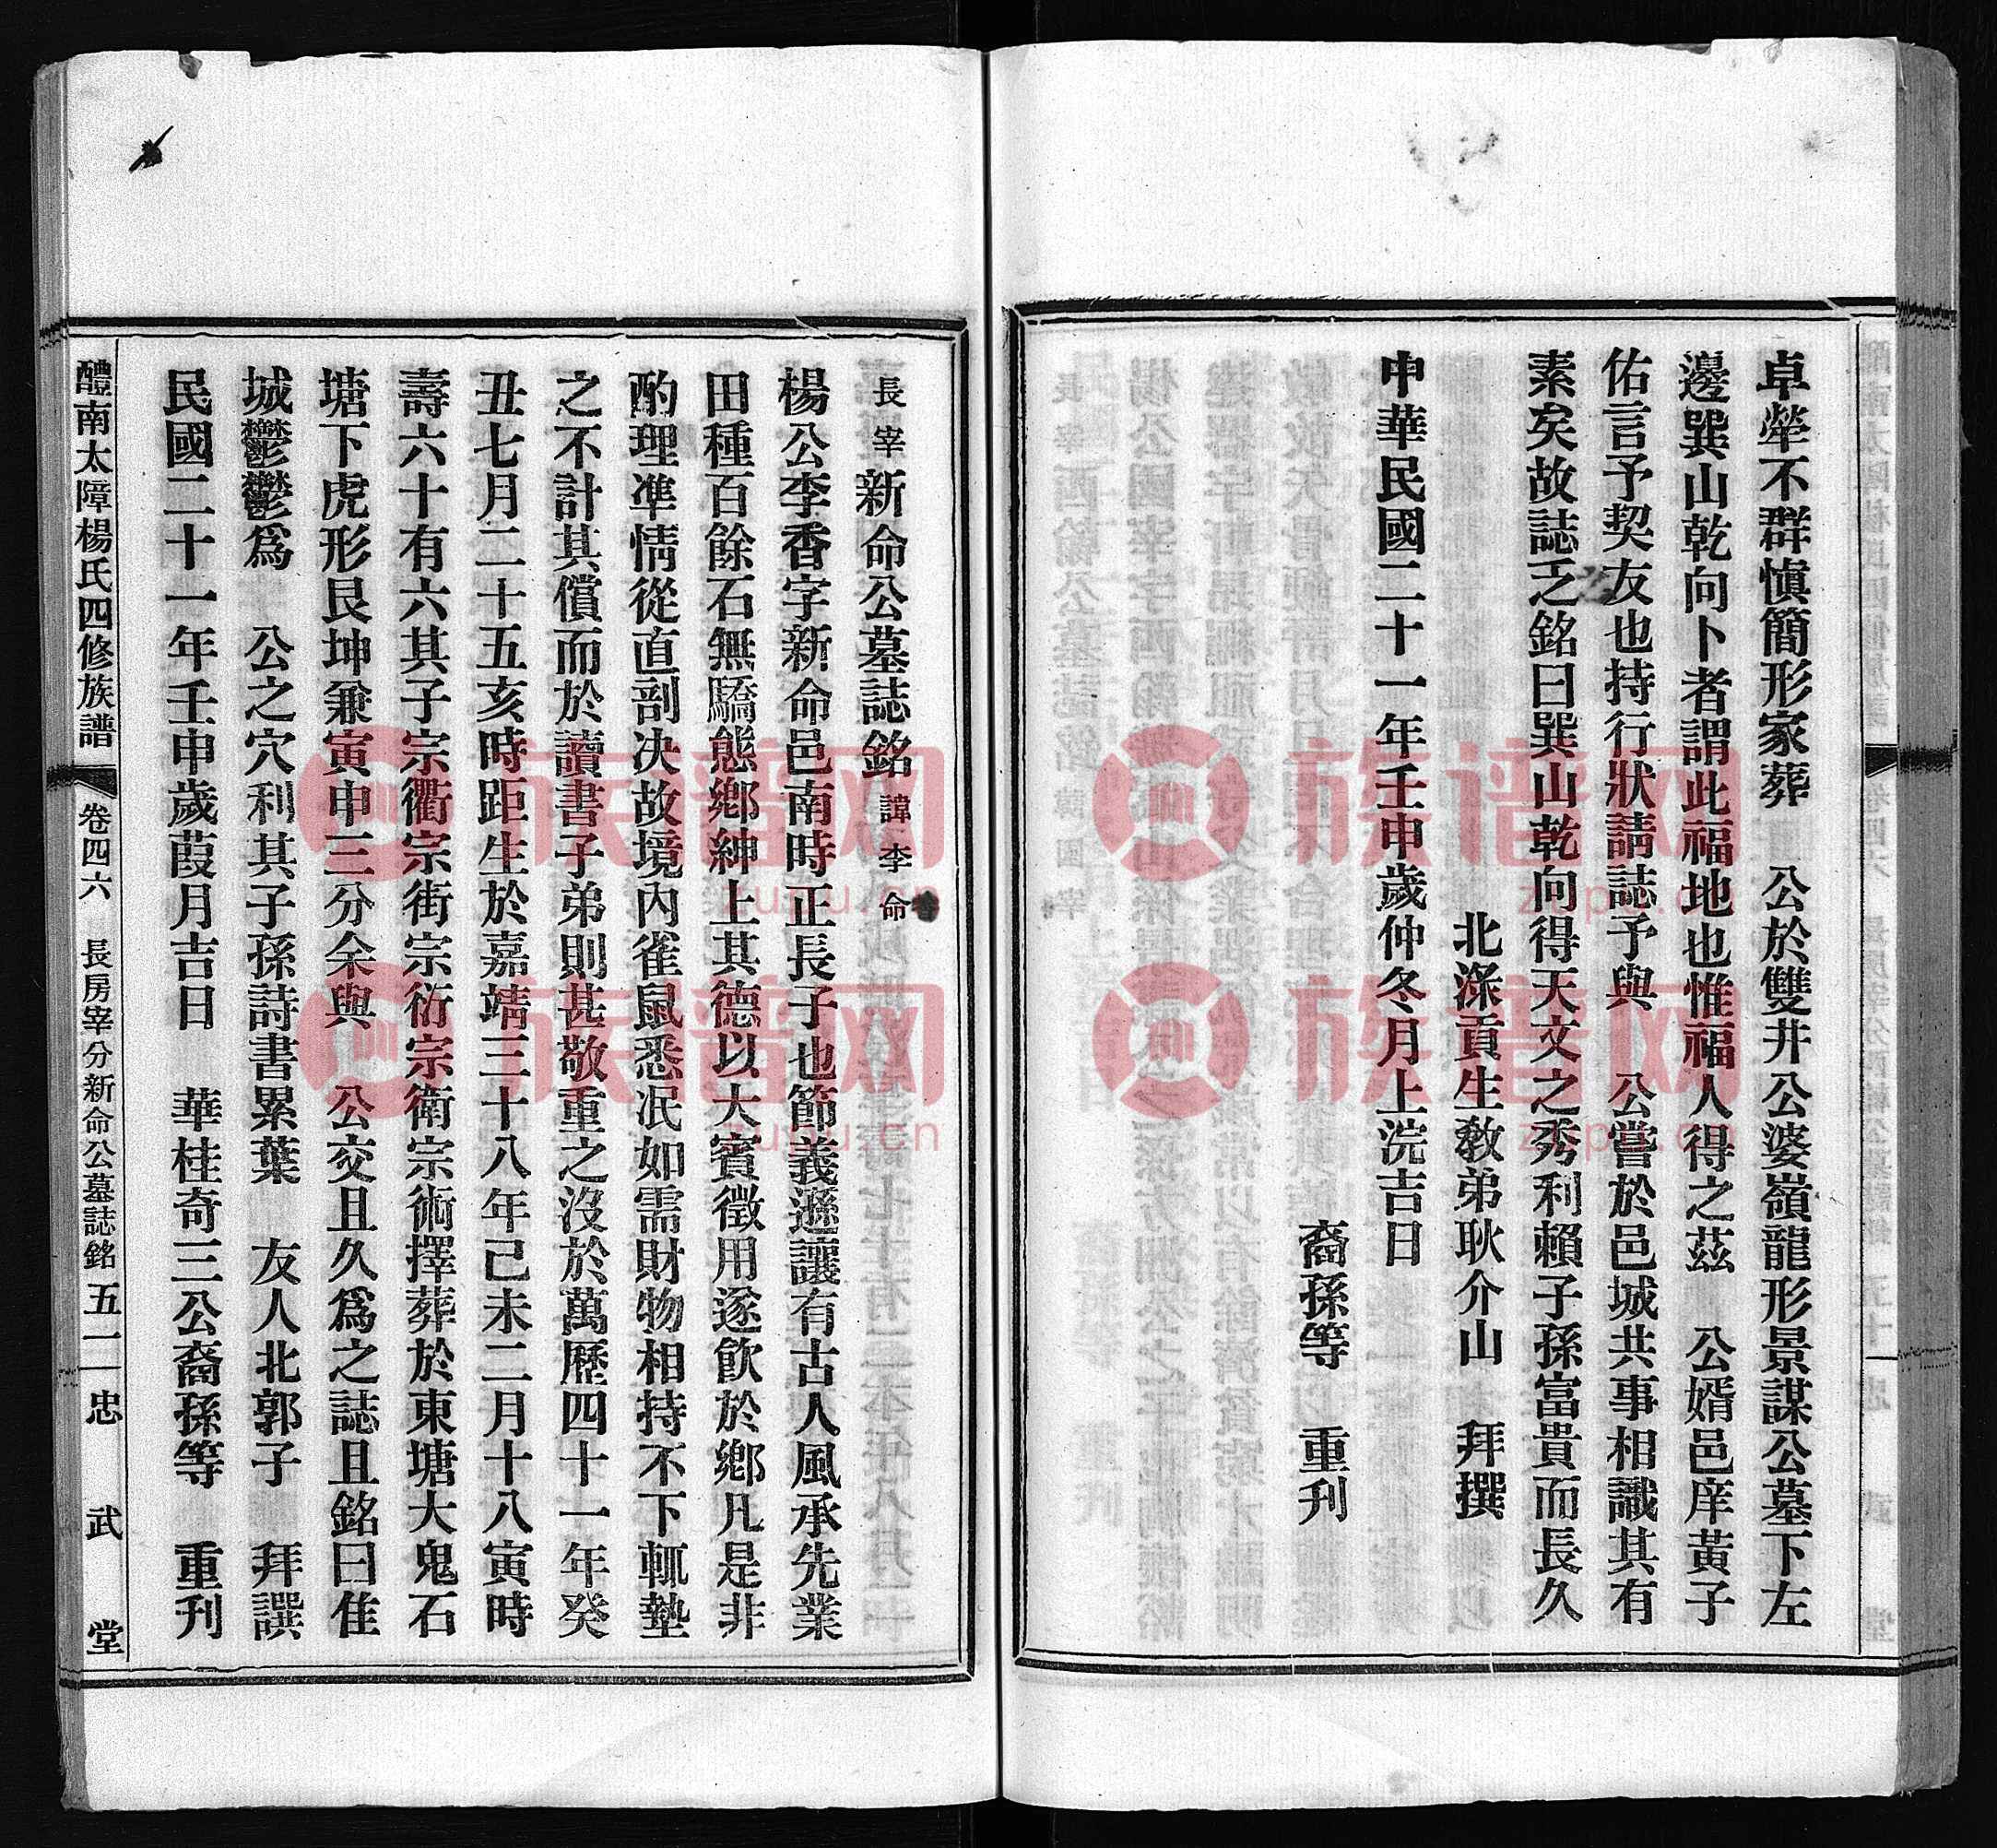 卓犖不群愼簡形家葬　公於雙井公婆嶺龍形景謀公墓下左
邊巽山乾向卜者謂此福地也惟福人得之茲　公婿邑庠黃子
佑言予契友也持行狀請誌予與　公嘗於邑城共事相識其有
素矣故誌之銘曰巽山乾向得天文之秀利賴子孫富貴而長久
北淥貢生教弟耿介山　拜撰
中華民國二十一年壬申歲仲冬月上浣吉日
裔孫等　重刊
長宰新命公墓誌銘諱李命
楊公李香字新命邑南時正長子也節義遜讓有古人風承先業
田種百餘石無驕態鄉紳上其德以大賓徵用遂飲於鄉凡是非
酌理準情從直剖决故境內雀鼠悉泯如需財物相持不下輒墊
之不計其償而於讀書子弟則甚敬重之沒於萬歷四十一年癸
丑七月二十五亥時距生於嘉靖三十八年己未二月十八寅時
壽六十有六其子宗衢宗街宗衍宗衛宗術擇葬於東塘大鬼石
塘下虎形艮坤兼寅申三分余與　公交且久爲之誌且銘曰佳
城鬱鬱爲　公之穴利其子孫詩書累葉　友人北郭子　拜譔
民國二十一年壬申歲葭月吉日　華桂奇三公裔孫等　重刊
醴南太障楊氏四修族譜　卷四六　長房宰分新命公墓誌銘　五一　忠武堂
族譜网
zupu.cn
族譜网
zupu.cn
族譜网
zupu.cn
族譜网
zupu.cn